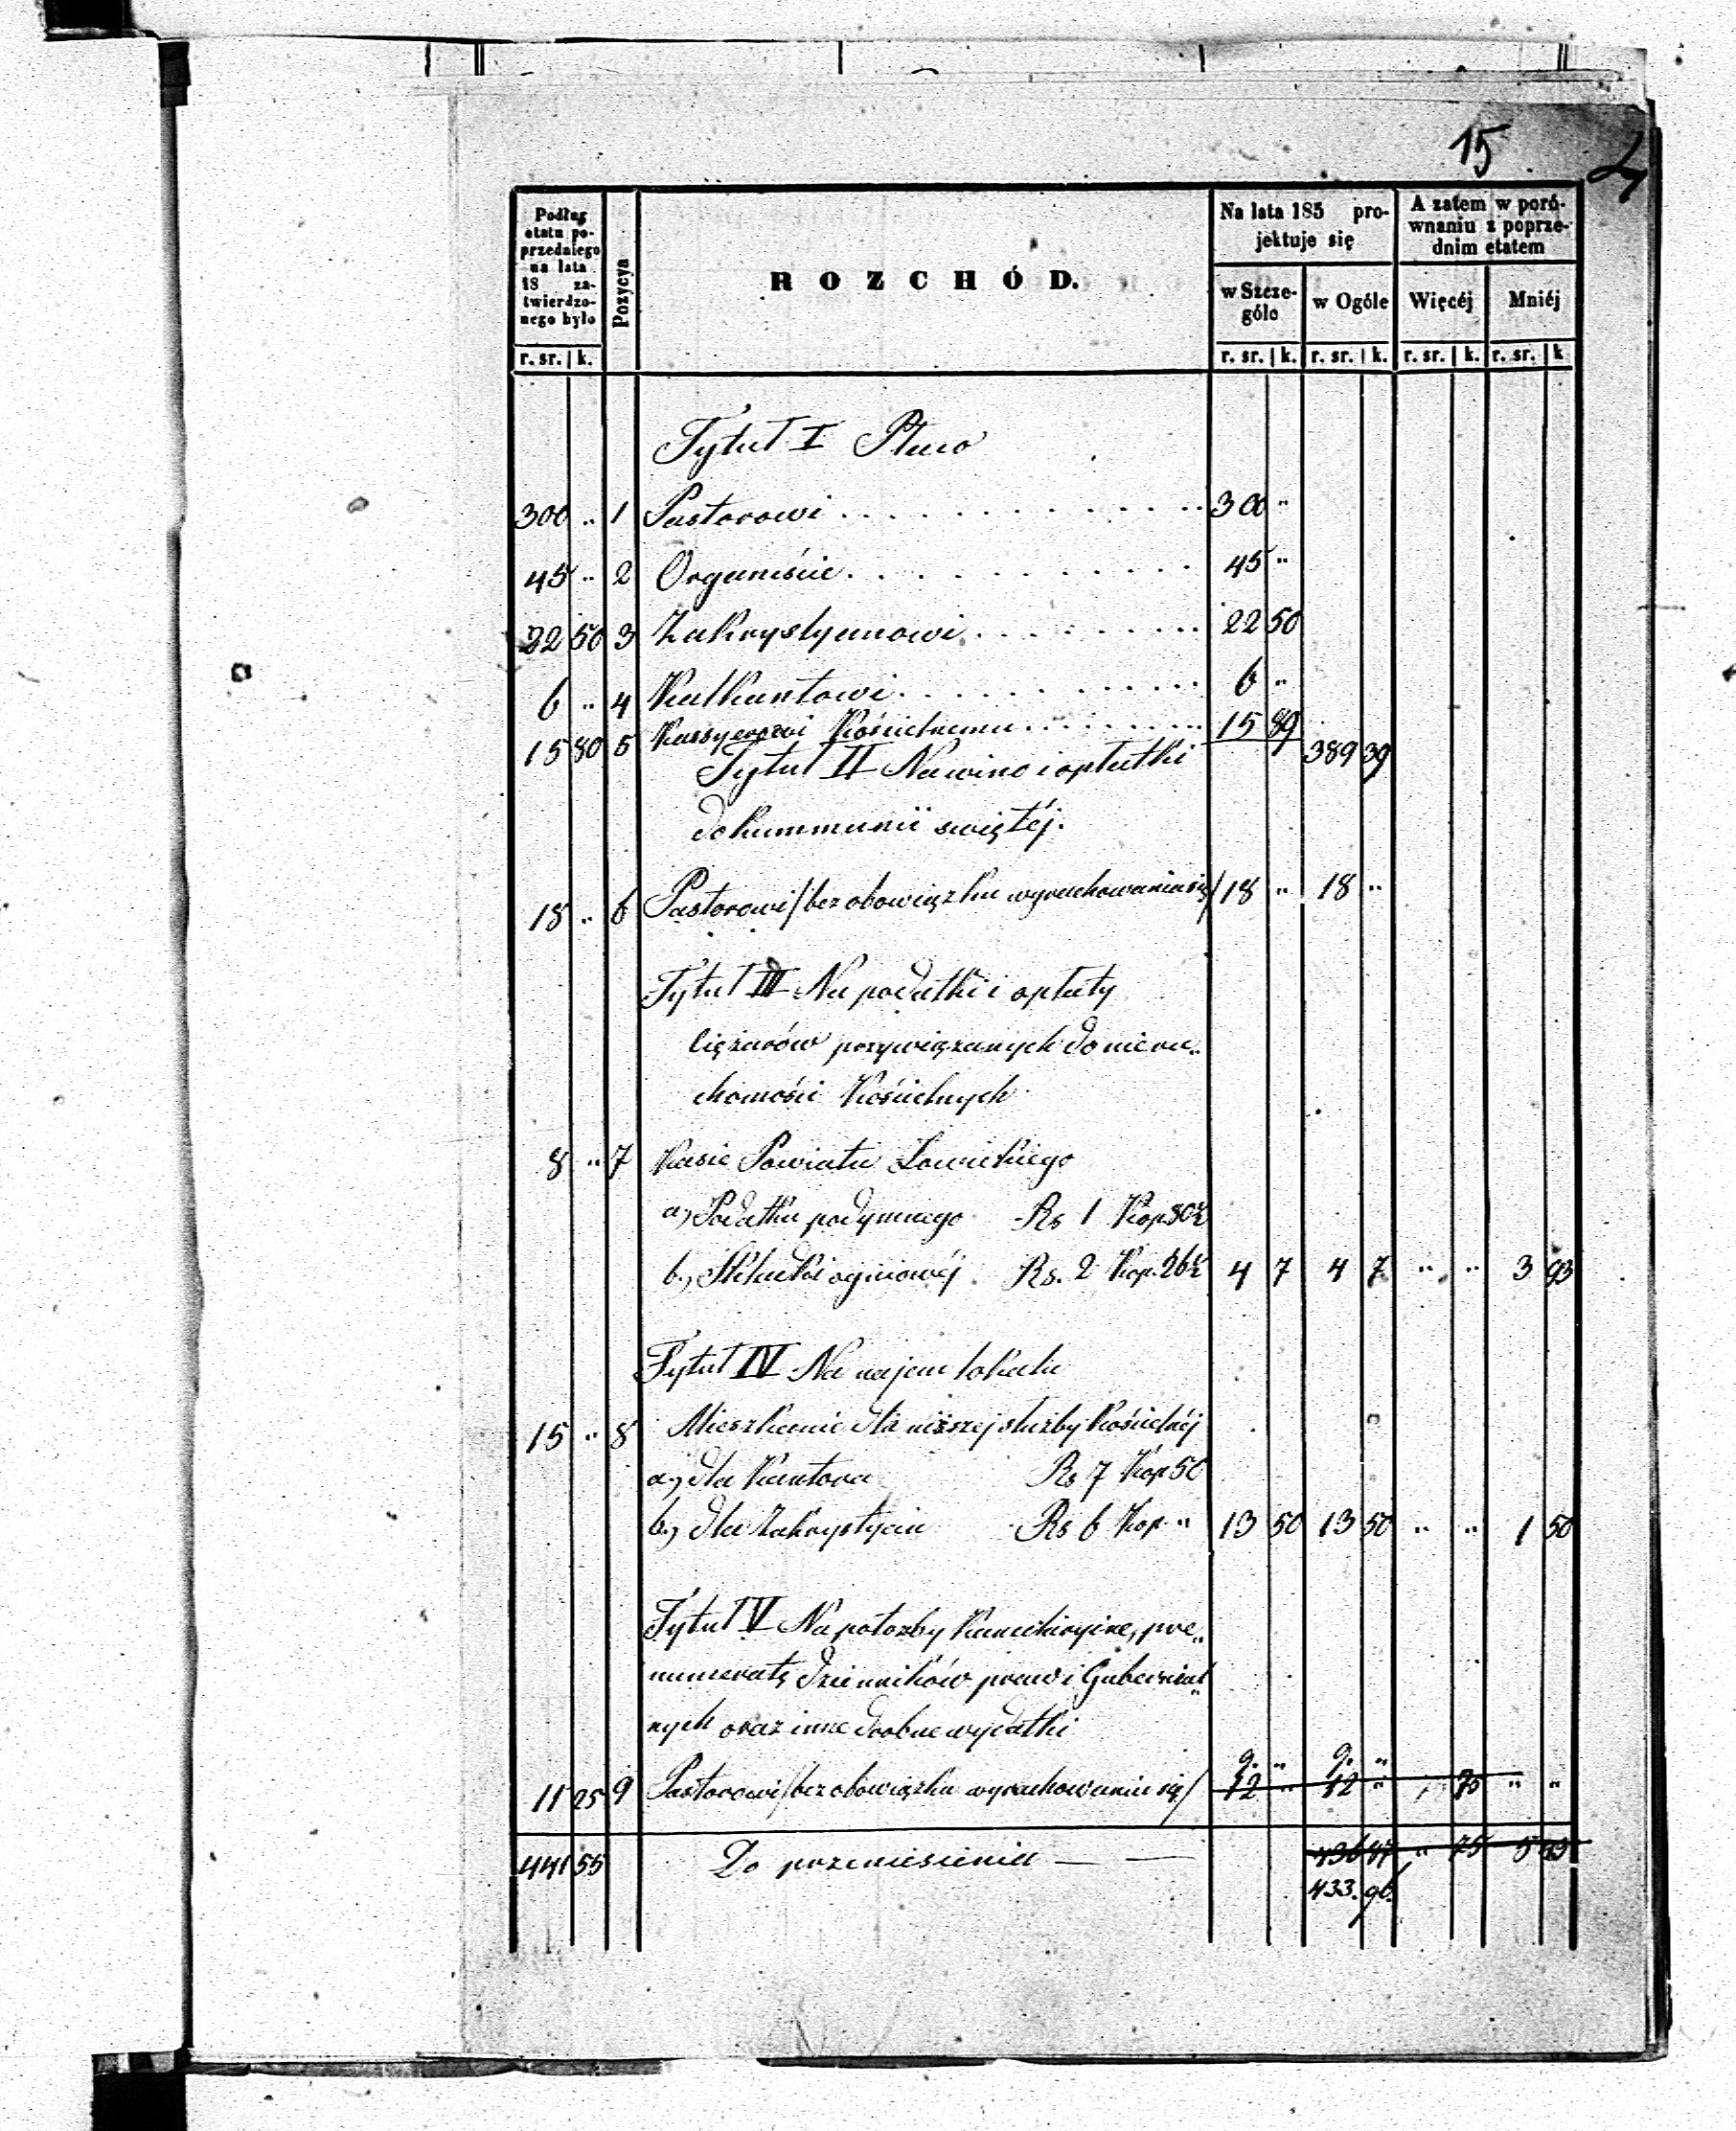 15
Podług etatu poprzedniego na lata 18 zatwierdzonego było
Pozycya
ROZCHÓD.
Na lata 185 projektuje się
A zatem w porównaniu z poprzednim etatem
w Szczególe
w Ogóle
Więcéj
Mniéj
r. sr. k. r. sr. k. r. sr. k. r. sr. k. r. sr. k
Tytuł I Płaca
300 " 1 Pastorowi . . . . . . . . . . . . . 300 "
45 " 2 Organiście . . . . . . . . . . . . 45 "
22 50 3 Zakrystyanowi . . . . . . . . . 22 50
6 " 4 Kalkantowi . . . . . . . . . . . 6 "
15 80 5 Kassyerowi Kościelnemu . . . . . . . . 15 89
Tytuł II Na wino i opłatki 389 39
do kummunii swiętéj.
18 " 6 Pastorowi /bez obowiązku wyrachowania się/ 18 " 18 "
Tytuł III Na podatki i opłaty
Ciężarów przywiązanych do nieru„
chomości Kościelnych
8 " 7 Kasie Powiatu Łowickiego
a) Podatku podymnego Rs 1 Kop 80½
b.) Składki ogniowéj Rs. 2 Kop. 26½ 4 7 4 7 " " 3 93
Tytuł IV Na najem lokalu
15 " 8 Mieszkanie dla niższej służby Kościelnéj
a.) dla Kantora Rs 7 Kop 50
b.) dla Zakrystyana Rs 6 Kop " 13 50 13 50 " " 1 50
Tytuł V Na potrzby Kancelaryine, pre„
numeratę Dzienników praw i Gubernial„
nych oraz inne drobne wydatki
9. " 9. "
11 25 9 Pastorowi /bez obowiązku wyrachowania się/ 12 " 12 " " 75 " "
441 55 Do przeniesienia — — 75 5
433. 96.